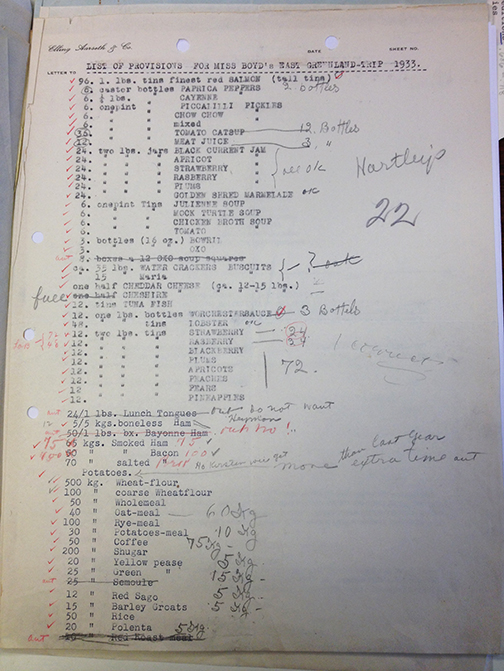 Elling Aarseth & Co.
DATE
SHEET NO.
LETTER TO
LIST OF PROVISIONS FOR MISS BOYD's EAST GREENLAND-TRIP 1933.
96. 1. lbs. tins finest red SALMON (tall tins)
6. castor bottles PAPRICA PEPPERS 2 bottles
6. ¼ lbs. " CAYENNE
6. onepint " PICCALILLI PICKLES
6. " " CHOW CHOW "
6. " " mixed "
36. " " TOMATO CATSUP 12 Bottles
12. " " MEAT JUICE 3 "
24. two lbs. jars BLACK CURRENT JAM
24. " " " APRICOT
24. " " " STRAWBERRY " all ok
24. " " " RASBERRY
24. " " " PLUMS
24. " " " GOLDEN SHRED MARMELADE ok
Hartleys
22
6. onepint Tins JULIENNE SOUP
6. " " MOCK TURTLE SOUP
6. " " CHICKEN BROTH SOUP
6. " " TOMATO
3. bottles (16 oz.) BOWRIL
3. " OXO
out 8. boxes a 12 OXO soup squares
ca. 35 lbs. WATER CRACKERS BUSCUITS
15 Maria
one half CHEDDAR CHEESE (ca. 12-15 lbs.)
full one half CHESHIRE "
12. tins TUNA FISH
12. one lbs. bottles WORCHESTERSAUCE 3 Bottels
48. " tins LOBSTER ok
12. two lbs. tins STRAWBERRY 24
12. " " " RASBERRY 24
12. " " " BLACKBERRY
12. " " " PLUMS
12. " " " APRICOTS 72.
12. " " " PEACHES
12. " " " PEARS
12. " " " PINEAPPLES
out 24/1 lbs. Lunch Tongues out Do not want
12 5/5 kgs. boneless Ham
out 50/1 lbs. bx. Bayonne Ham out no!
75 kgs. Smoked Ham 75
100 " " Bacon 100
70 " salted more than Last Year
extra time out
Potatoes.
500 kg. Wheat-flour,
100 " coarse Wheatflour
50 " Wholemeal
40 " Oat-meal 60 Kg
100 " Rye-meal
30 " Potatoes-meal 10 Kg
50 " Coffee 75 Kg
200 " Shugar
20 " Yellow pease 5 Kg
25 " Green " 15 Kg
25 " Semoule
12 " Red Sago 5 Kg
15 " Barley Groats 5 Kg
50 " Rice
20 " Polenta 5 Kg
out